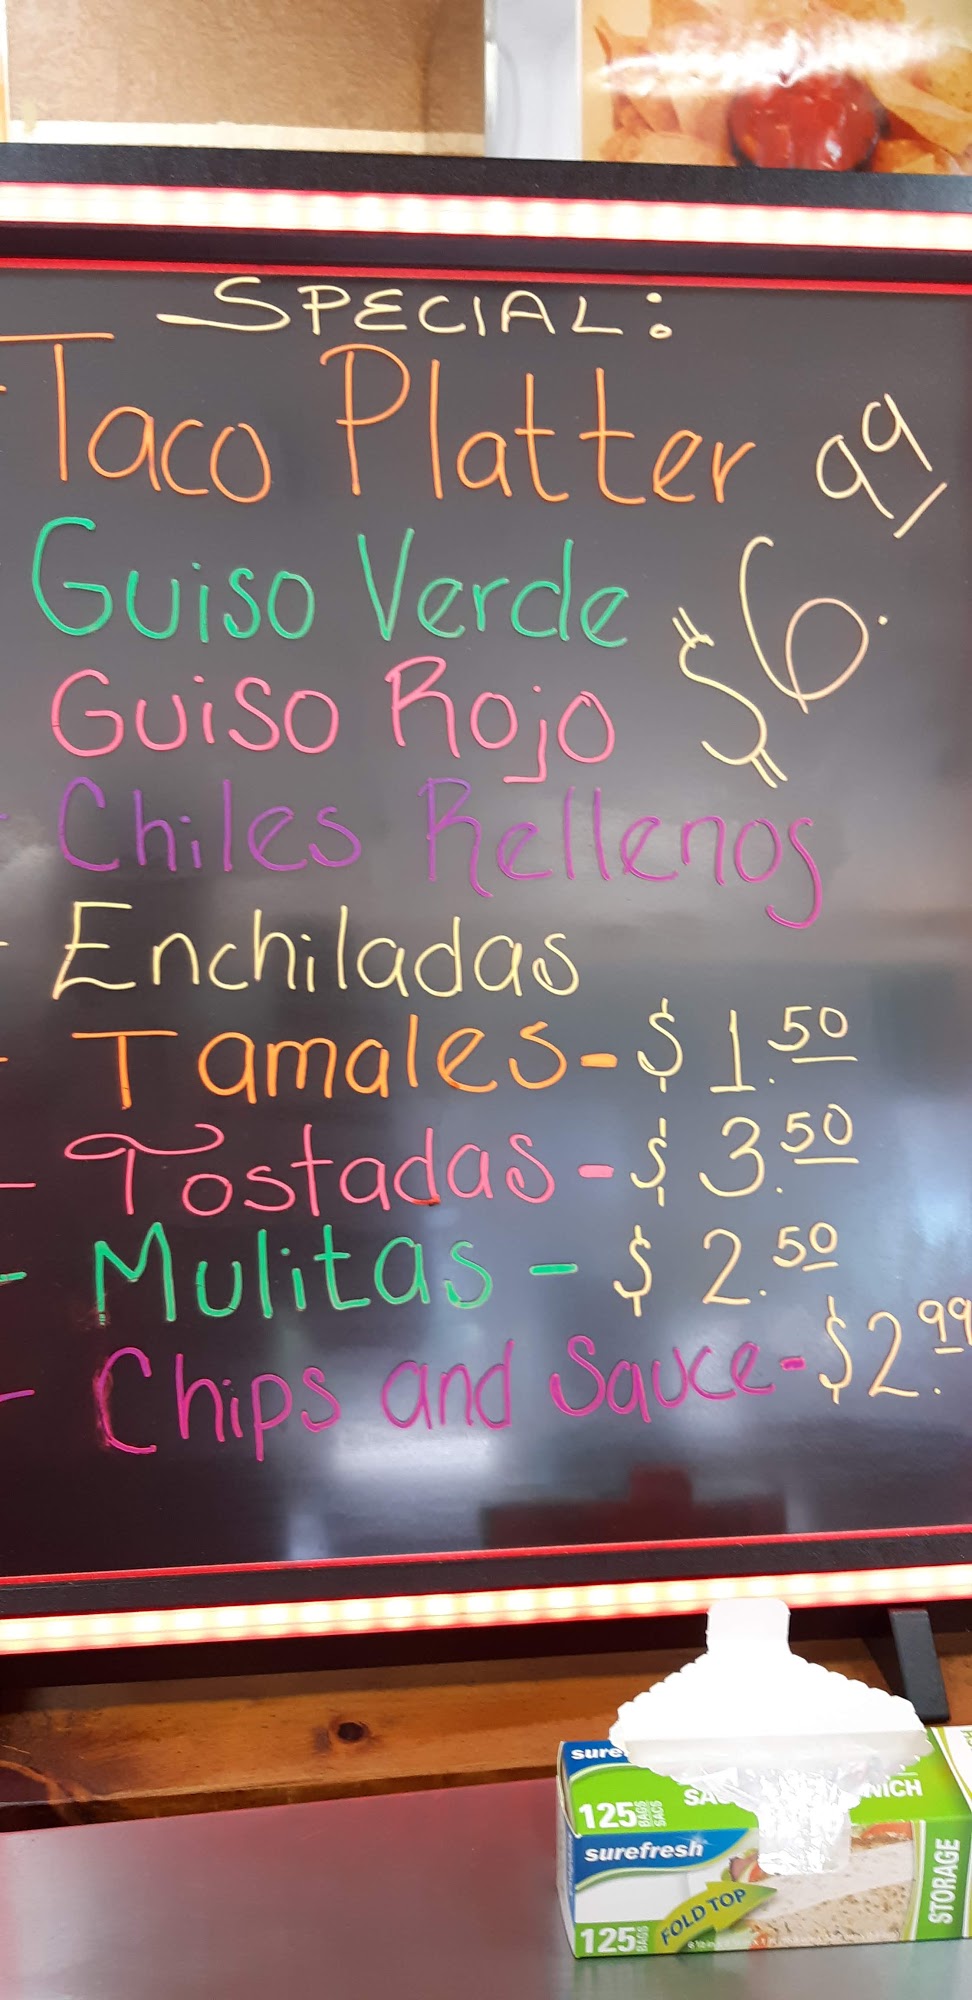 SPECIAL:
- Taco Platter
Guiso Verde $6.99
Guiso Rojo
- Chiles Rellenos
- Enchiladas
- Tamales - $1.50
- Tostadas - $3.50
- Mulitas - $2.50
- Chips and Sauce - $2.99
sure
SA NICH
125 BAGS SACS
surefresh
FOLD TOP
125 BAGS
STORAGE